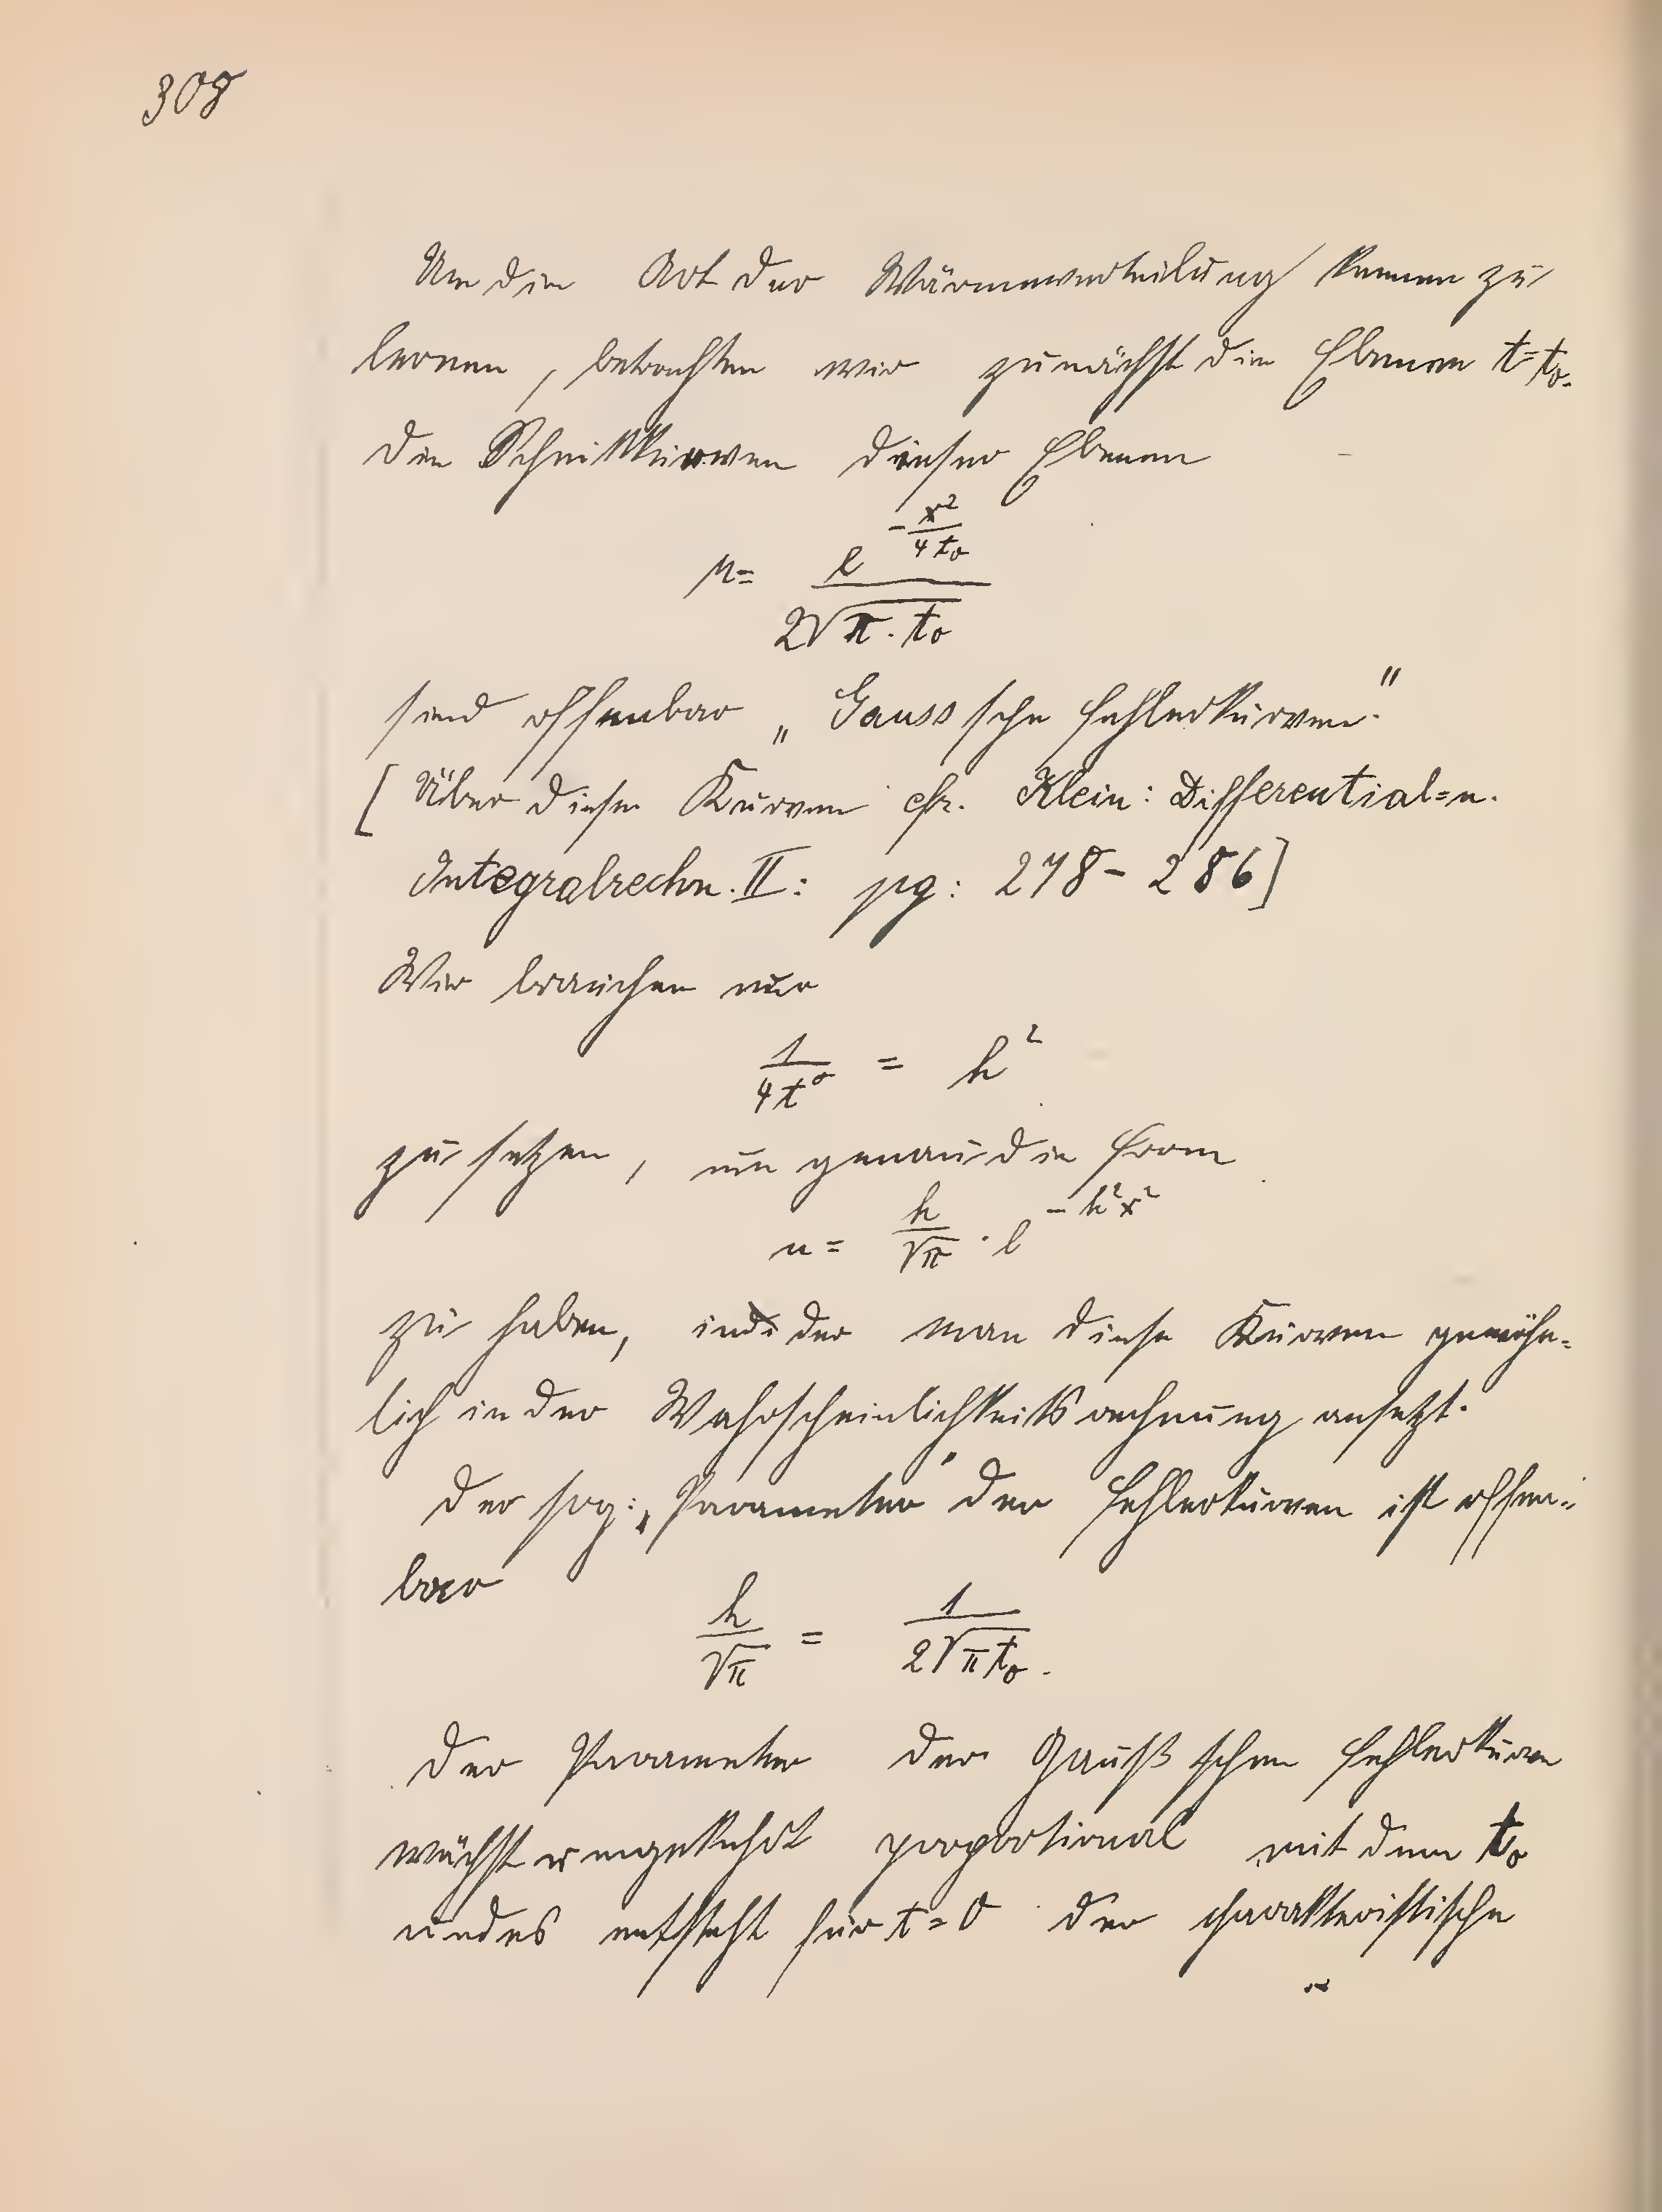 308
Um die Art der Wärmeverteilung kennen zu
lernen, betrachten wir zunächst die Ebenen t=t₀.
Die Schnittkurven dieser Ebenen
u = e^{-x²/4t₀} / 2√π·t₀
sind offenbar „Gauss'sche Fehlerkurven."
[Über diese Kurven cfr. Klein: Differential= u.
Integralrechn. II: pg: 278-286]
Wir brauchen nur
1/4t₀ = h²
zu setzen, um genau die Form
u = h/√π · e^{-h²x²}
zu haben, in der man diese Kurven gewöhn=
lich in der Wahrscheinlichkeitsrechnung ansetzt.
Der sog: „Parameter" der Fehlerkurven ist offen=
bar
h/√π = 1/2√πt₀.
Der Parameter der Gaußschen Fehlerkurve
wächst umgekehrt proportional mit dem t₀
und es entsteht für t=0 der charakteristische